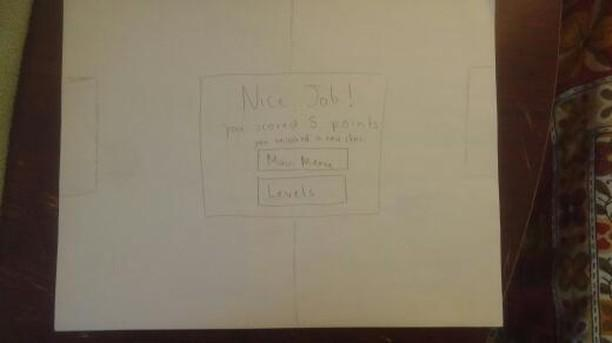 Nice Job!
you scored 5 points
you unlocked a new
Main Menu
Levels